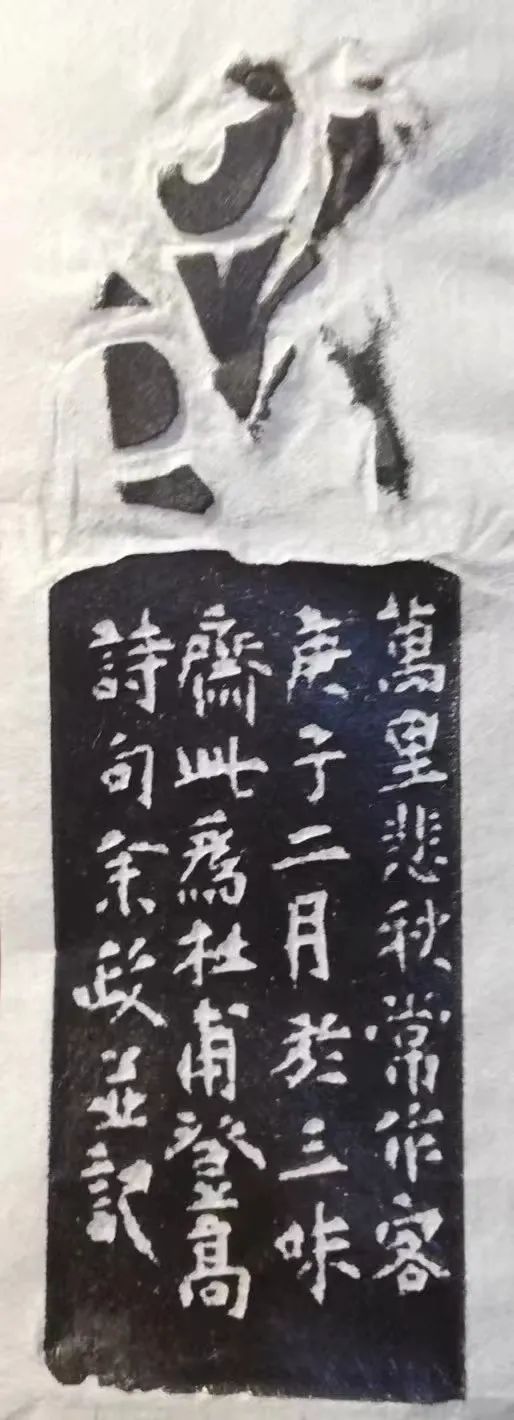 萬里悲秋常作客
庚子二月於三味
齋此為杜甫登高
詩句余政並記